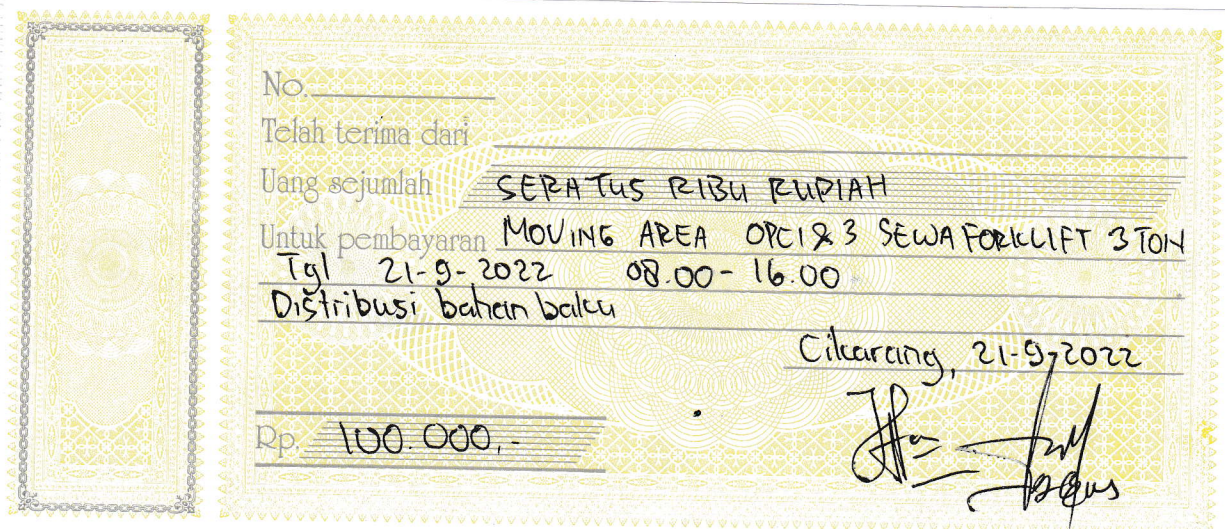 No.
Telah terima dari
Uang sejumlah SERATUS RIBU RUPIAH
Untuk pembayaran MOVING AREA OPC1&3 SEWA FORKLIFT 3 TON
Tgl 21-9-2022 08.00-16.00
Distribusi bahan baku
Cikarang, 21-9-2022
Rp. 100.000,-